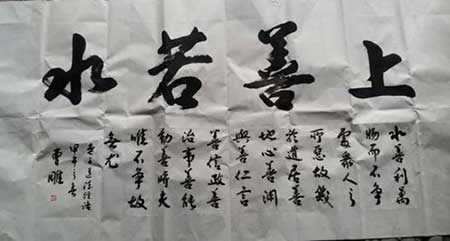 上善若水
水善利萬
物而不争
處衆人之
所惡故幾
於道居善
地心善淵
與善仁言
善信政善
治事善能
動善時夫
唯不争故
無尤
甲午之春
東雕